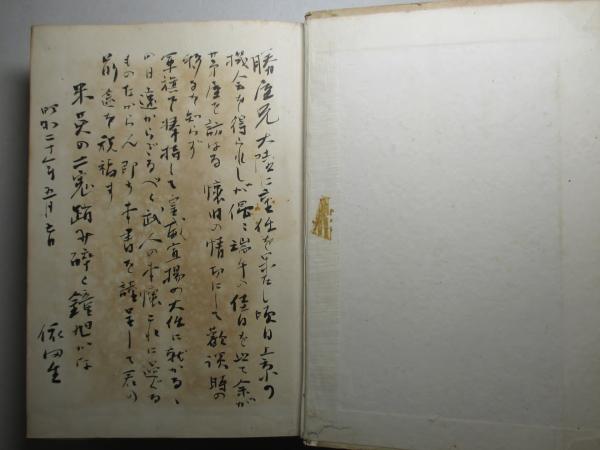 勝庄兄大陸に重任を果たし頃日上京の
機会を得られしが偶々端午の佳日を以て余が
茅屋を訪はる 懐旧の情切にして歓談時の
移るを知らず
軍旗を捧持して皇威宣揚の大任に就かるゝ
の日遠からざるべく武人の本懐これに過ぐる
ものなからん 即ち本書を謹呈して君の
前途を祝福す
米英の二鬼踏み砕く鐘旭かな
昭和二十年五月五日
生